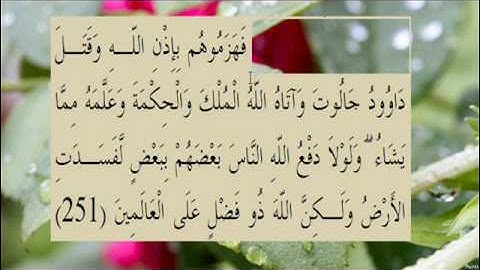 فَهَزَمُوهُم بِإِذْنِ اللَّـهِ وَقَتَـلَ
دَاوُودُ جَالُوتَ وَآتَاهُ اللَّهُ الْمُلْكَ وَالْحِكْمَةَ وَعَلَّمَهُ مِمَّا
يَشَاءُ ۗ وَلَوْلَا دَفْعُ اللَّهِ النَّاسَ بَعْضَهُمْ بِبَعْضٍ لَّفَسَـدَتِ
الْأَرْضُ وَلَـكِنَّ اللَّهَ ذُو فَضْلٍ عَلَى الْعَالَمِينَ (251)